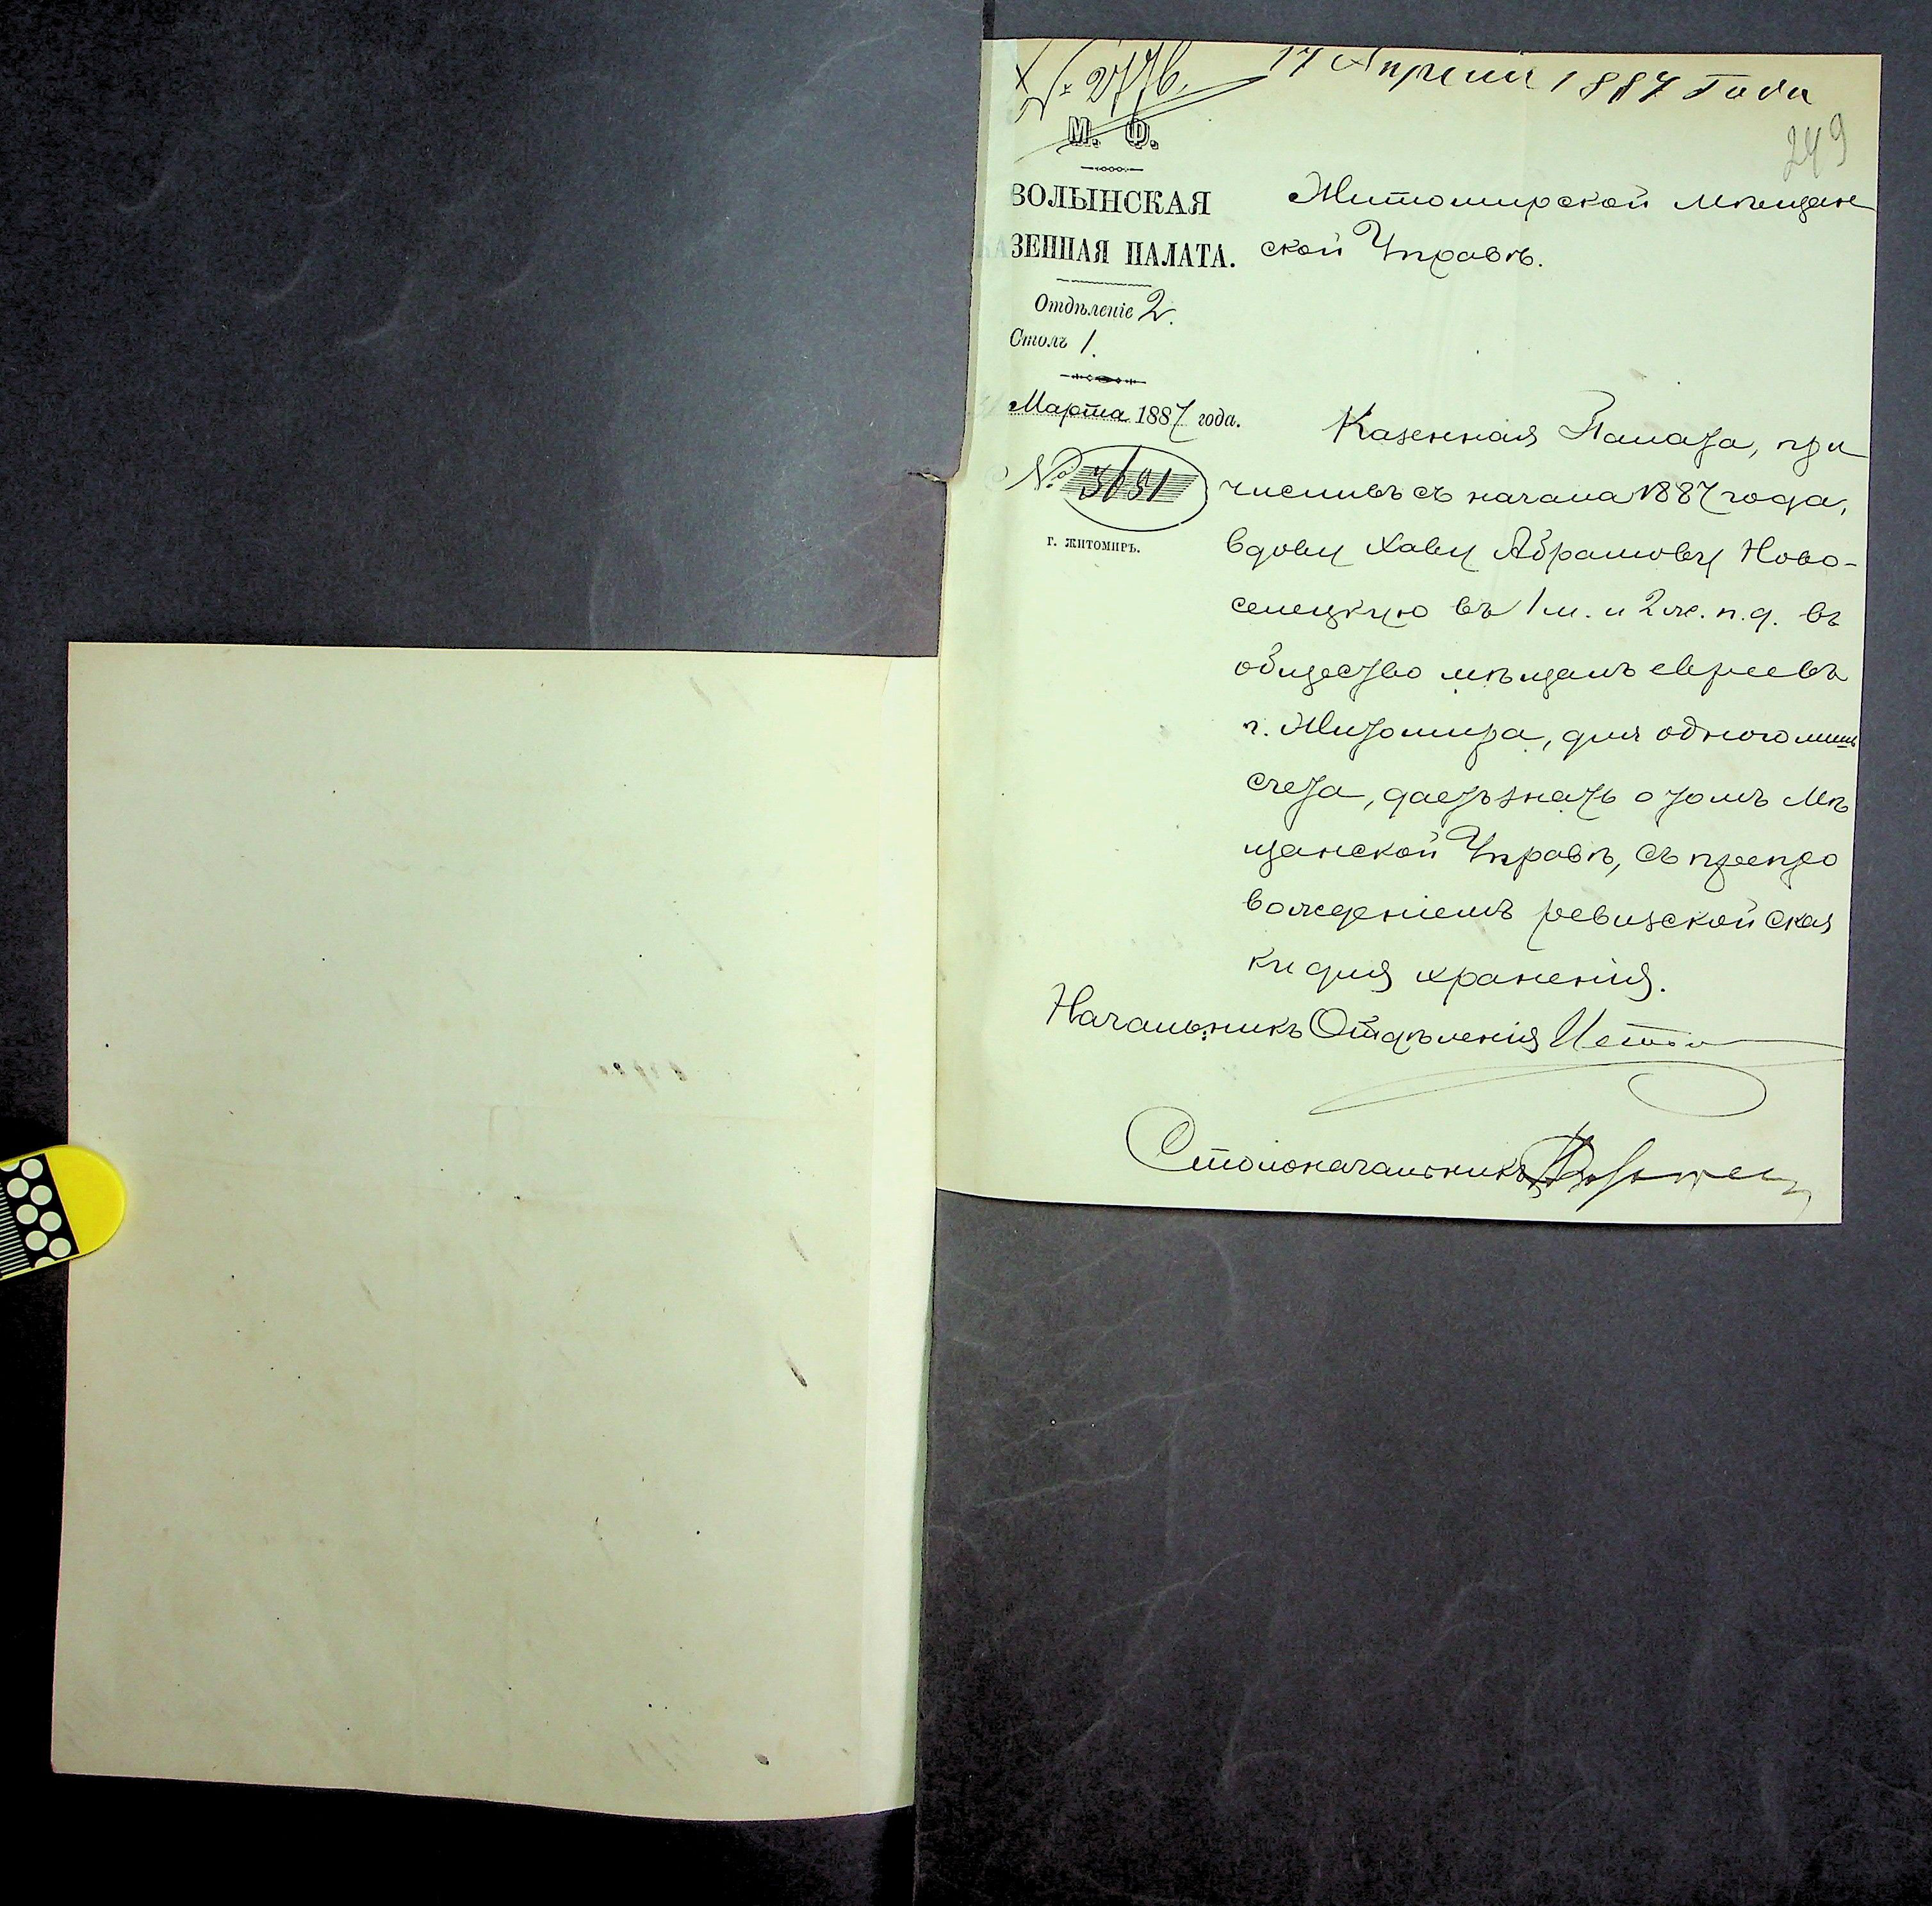 № 2776. 17 Апреля 1887 Года
249
М. Ф.
ВОЛЫНСКАЯ
КАЗЕННАЯ ПАЛАТА.
Отдѣленіе 2.
Столъ 1.
Марта 1887 года.
№
г. ЖИТОМИРЪ.
Житомирской мѣщан
ской Управѣ.
Казенная Палата, при
числивъ съ начала 1887 года,
вдову Хаву Абрамову Ново-
селецкую въ 1 м. и 2 ж. п. д. въ
общество мѣщанъ евреевъ
г. Житомира, для одного лишь
счета, даетъ знать о томъ Мѣ
щанской Управѣ, съ препро
вожденіемъ ревизской сказ
ки для храненія.
Начальникъ Отдѣленія
Столоначальникъ